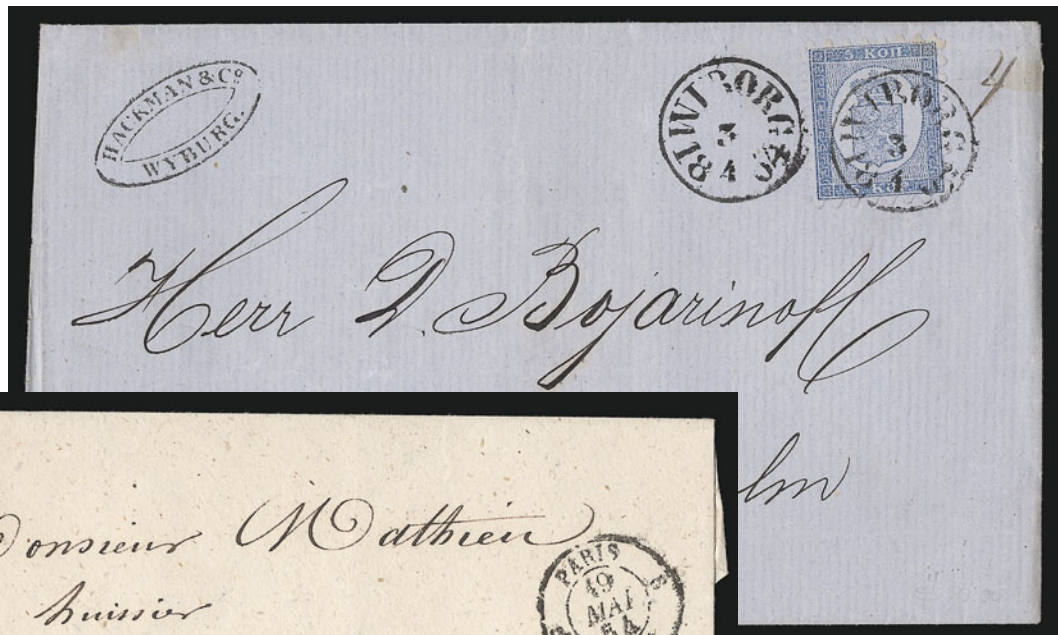 HACKMAN & Co
WYBURG.
WIBORG
3
4
5. КОП.
WIBORG
3
4
5. КОП.
4
Herr D. Bojarinoff
lm
Monsieur Mathieu
huissier
PARIS
19
MAI
54